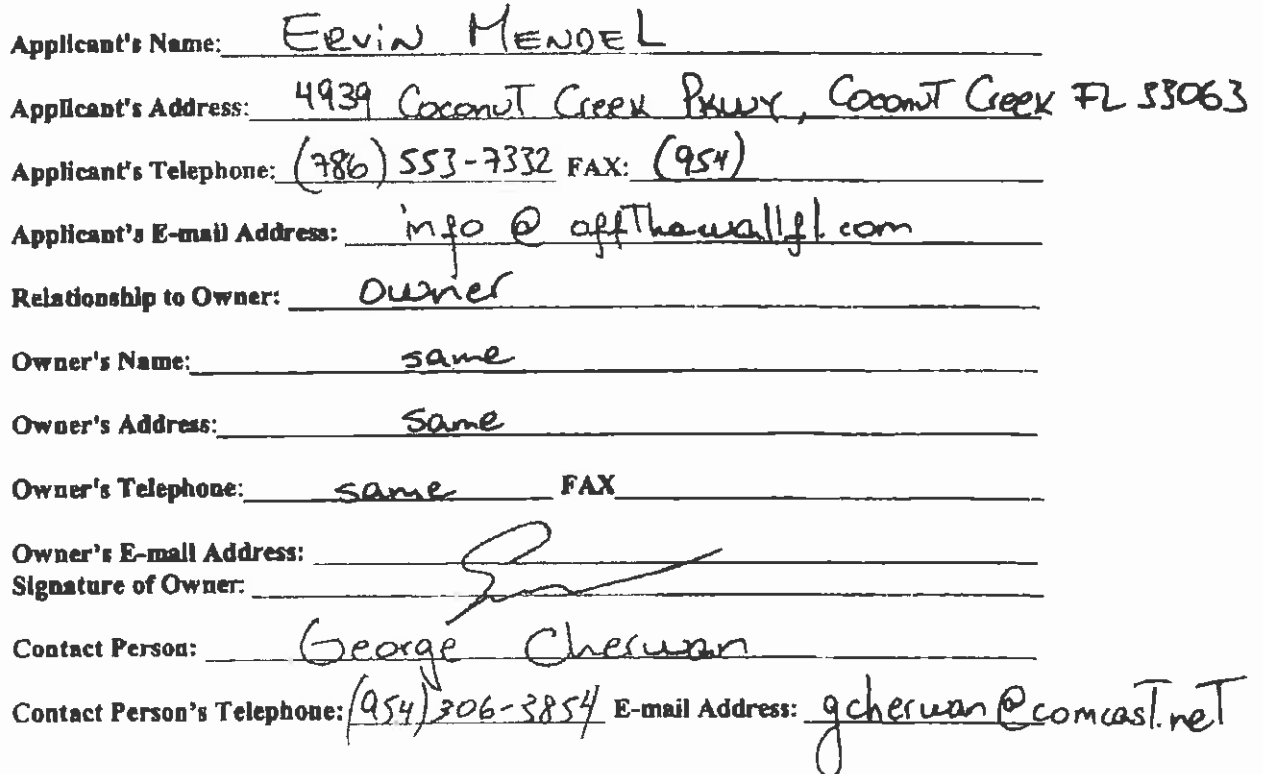 Applicant's Name: Ervin Mendel
Applicant's Address: 4939 Coconut Creek Pkwy, Coconut Creek FL 33063
Applicant's Telephone: (786) 553-7332 FAX: (954)
Applicant's E-mail Address: info @ offthewallfl.com
Relationship to Owner: Owner
Owner's Name: same
Owner's Address: Same
Owner's Telephone: same FAX
Owner's E-mail Address:
Signature of Owner:
Contact Person: George Cherwan
Contact Person's Telephone: (954) 306-3854 E-mail Address: gcherwan@comcast.net